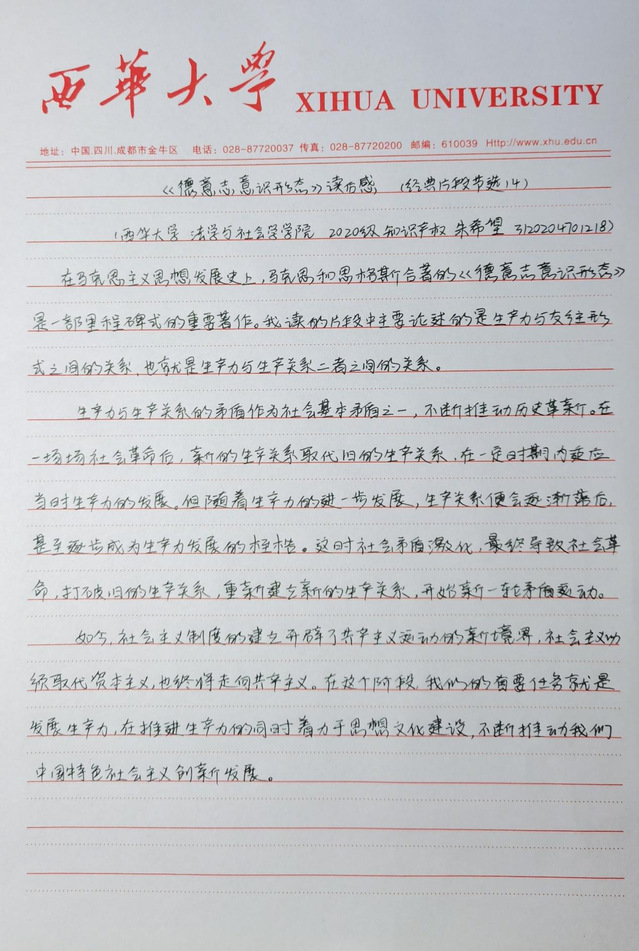 西華大學 XIHUA UNIVERSITY
地址：中国.四川.成都市金牛区 电话：028-87720037 传真：028-87720200 邮编：610039 Http://www.xhu.edu.cn
《德意志意识形态》读后感 （经典片段节选14）
（西华大学 法学与社会学学院 2020级知识产权 朱希望 3120204701218）
在马克思主义思想发展史上，马克思和恩格斯合著的《德意志意识形态》
是一部里程碑式的重要著作。我读的片段中主要论述的是生产力与交往形
式之间的关系，也就是生产力与生产关系二者之间的关系。
生产力与生产关系的矛盾作为社会基本矛盾之一，不断推动历史革新。在
一场场社会革命后，新的生产关系取代旧的生产关系，在一定时期内适应
当时生产力的发展。但随着生产力的进一步发展，生产关系便会逐渐落后，
甚至逐步成为生产力发展的桎梏。这时社会矛盾激化，最终导致社会革
命，打破旧的生产关系，重新建立新的生产关系，开始新一轮矛盾运动。
如今，社会主义制度的建立开辟了共产主义运动的新境界，社会主义必
须取代资本主义，也终将走向共产主义。在这个阶段，我们的首要任务就是
发展生产力，在推进生产力的同时着力于思想文化建设，不断推动我们
中国特色社会主义创新发展。